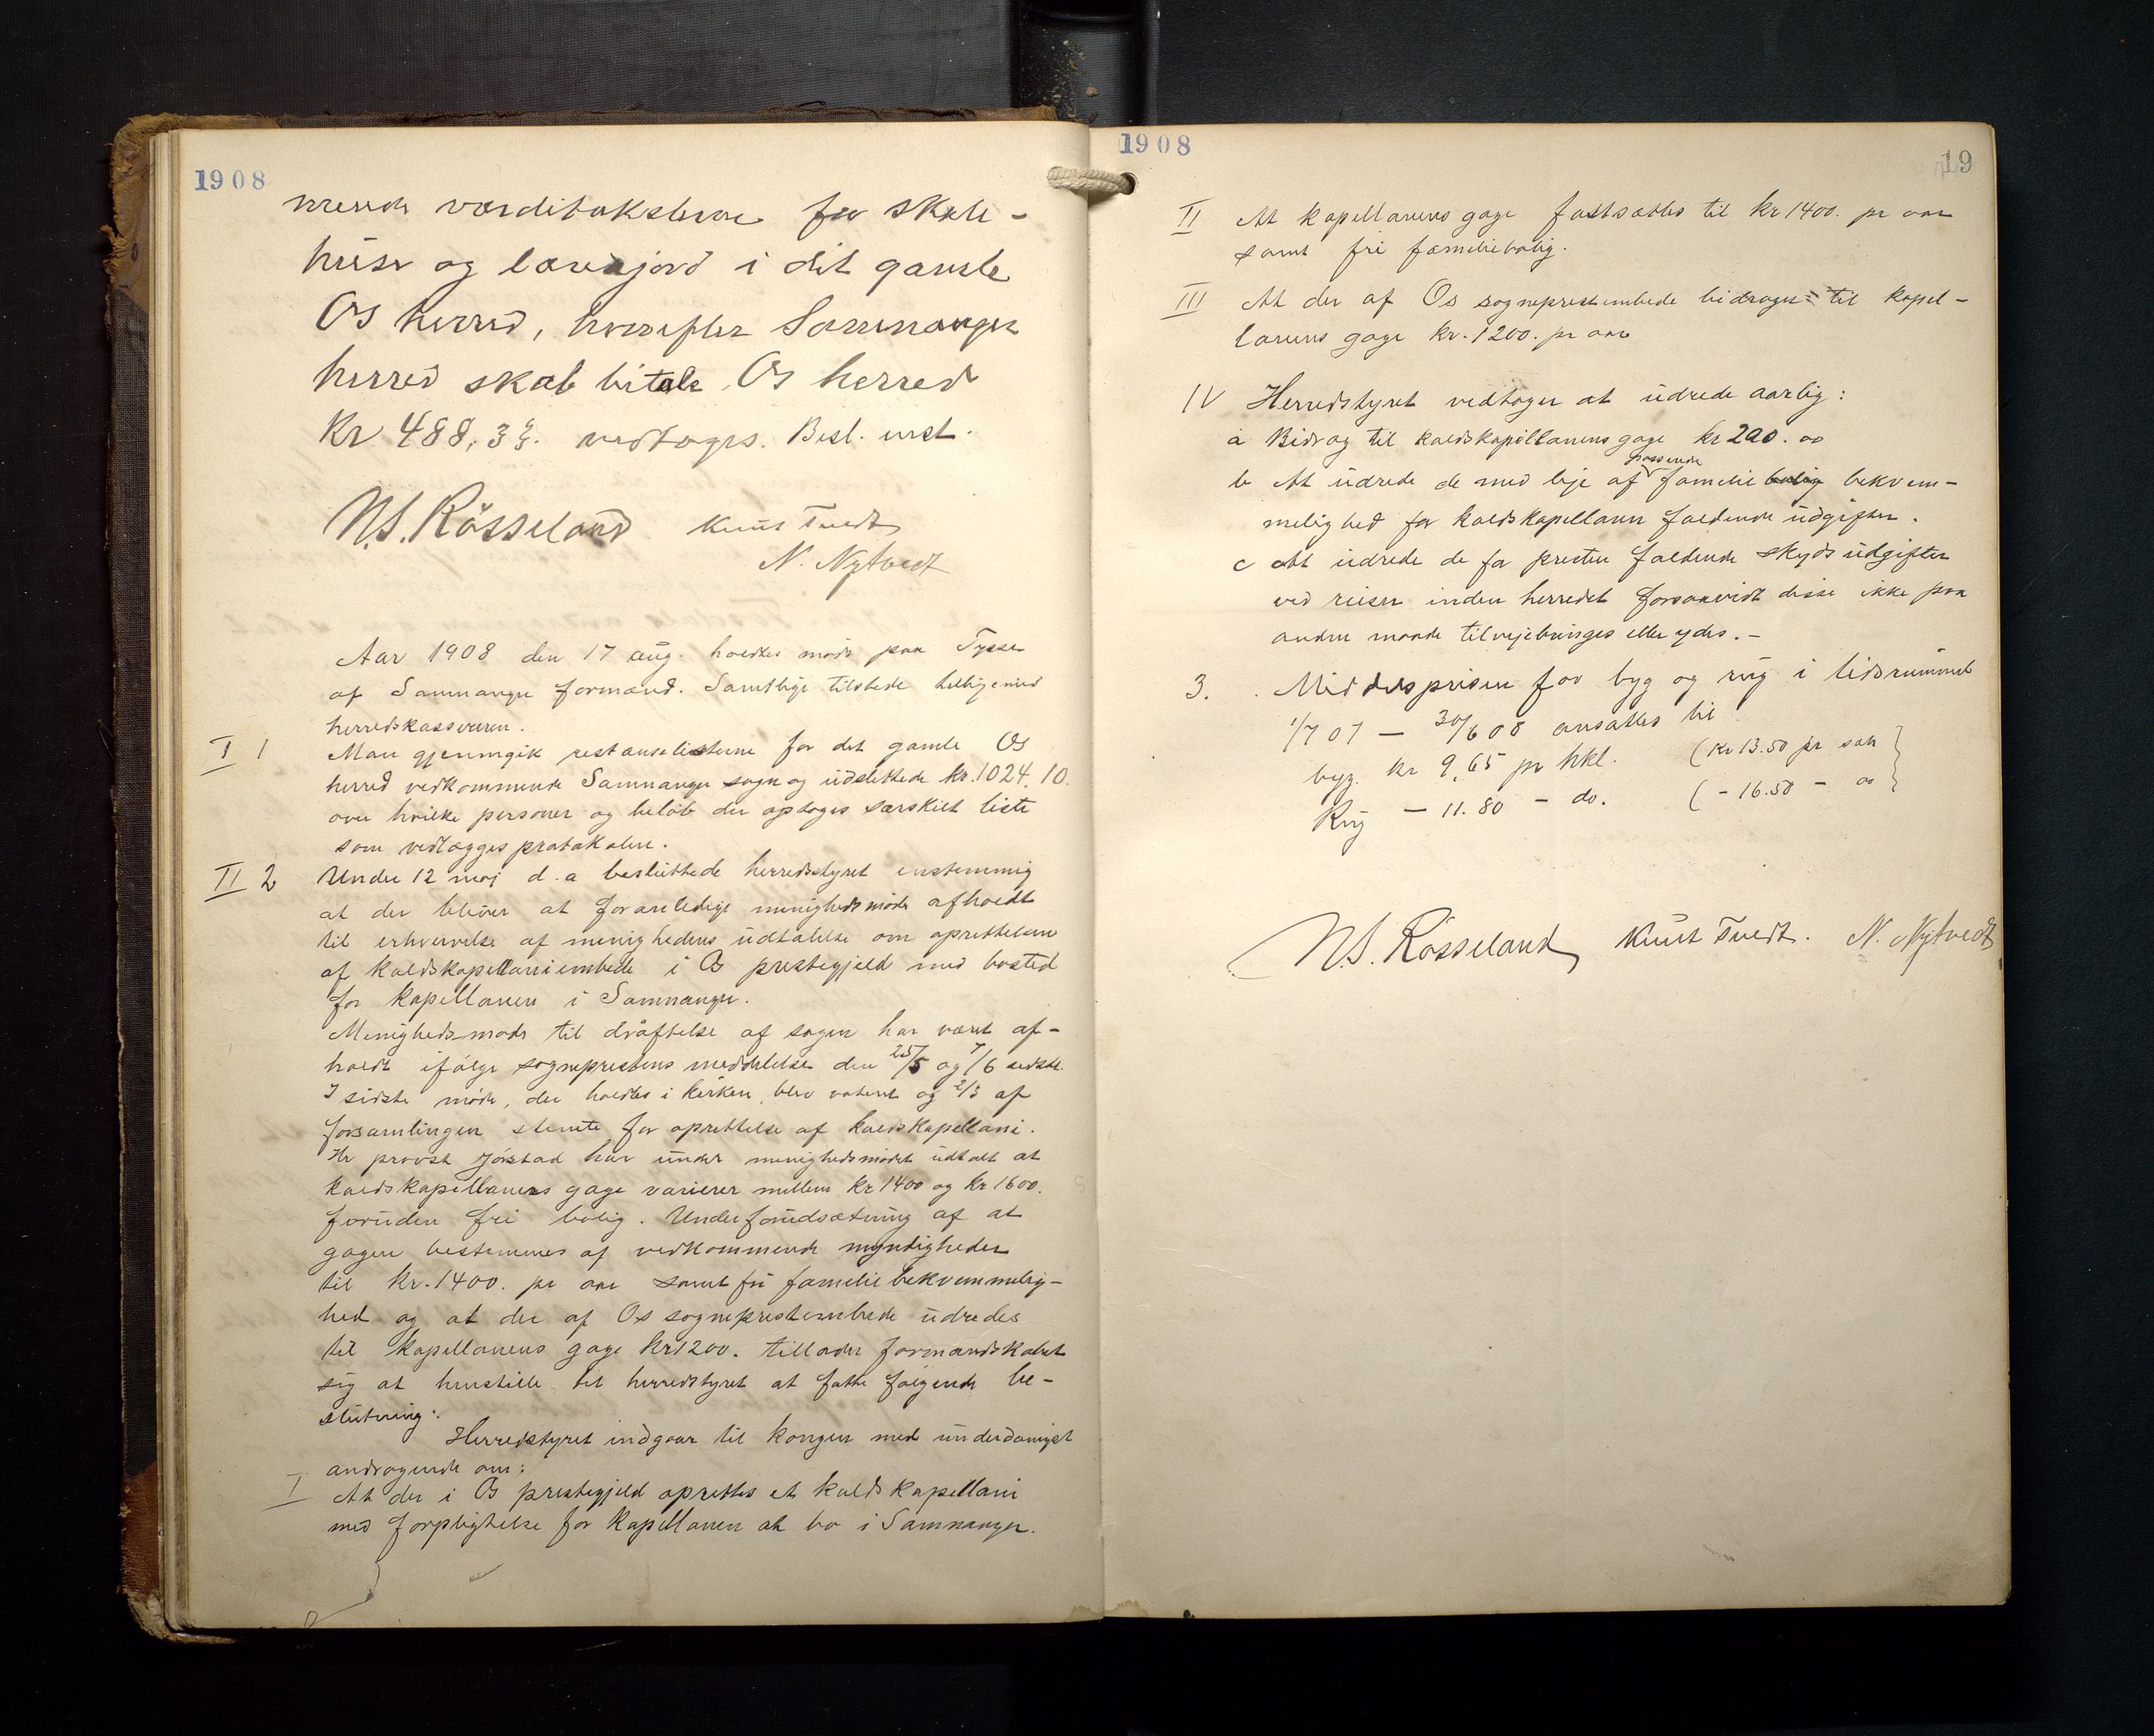 1908
nende værditaksterne for skole-
huse og lærerjord i det gamle
Os herred, hvorefter Samnanger
herred skal betale Os herred
Kr 488,33. vedtoges. Besl. enst.
N.S. Rösseland Knut Tvedt
N. Nytvedt
Aar 1908 den 17 aug. holdtes møde paa Tysse
af Samnanger formænd. Samtlige tilstede tilligemed
herredskassereren.
I 1 Man gjennemgik restanselisterne for det gamle Os
herred vedkommende Samnanger sogn og udslettede kr. 1024.10.
over hvilke personer og beløb der optoges særskilt liste
som vedlægges protokolen.
II 2 Under 12 maj d.a besluttede herredstyret enstemmig
at der bliver at foranledige menighedsmøde afholdt
til erhvervelse af menighedens udtalelse om oprettelsen
af kaldskapellaniembede i Os prestegjeld med bosted
for kapellanen i Samnanger.
Menighedsmøde til drøftelse af sagen har vært af-
holdt ifølge sogneprestens meddelelse den 25/5 og 7/6 sidste.
I sidste møde, der holdtes i kirken, blev voteret og 2/3 af
forsamlingen stemte for oprettelse af kaldskapellani.
Hr provst Jørstad har under menighedsmødet udtalt at
kaldskapellanens gage varierer mellem kr 1400 og kr 1600.
foruden fri bolig. Under forudsætning af at
gagen bestemmes af vedkommende myndigheder
til kr. 1400. pr aar samt fri familiebekvemmelig-
hed og at der af Os sogneprestembede udredes
til kapellanens gage kr 1200. tillader formandskabet
sig at henstille til herredstyret at fatte følgende be-
slutning:
Herredstyret indgaar til kongen med underdanigst
andragende om:
I At der i Os prestegjeld oprettes et kaldskapellani
med forpligtelse for kapellanen at bo i Samnanger.
1908
19
II At kapellanens gage fastsættes til kr 1400. pr aar
samt fri familiebolig.
III At der af Os sogneprestembede bidrages til kapel-
lanens gage kr. 1200. pr aar
IV Herredstyret vedtager at udrede aarlig:
a Bidrag til kaldskapellanens gage kr 200.00
b At udrede de med leje af passende familie bolig bekvem-
melighed for kaldskapellanen faldende udgifter.
c At udrede de for presten faldende skydsudgifter
ved reiser inden herredet forsaavidt disse ikke paa
anden maade tilvejebringes eller ydes. -
3. Middelsprisen for byg og rug i tidsrummet
1/7 07 — 30/6 08 ansættes til
byg. kr 9,65 pr hkl. (kr 13.50 pr sæk
Rug — 11.80 - do. ( - 16.50 - do
N.S. Rösseland Knut Tvedt. N. Nytvedt